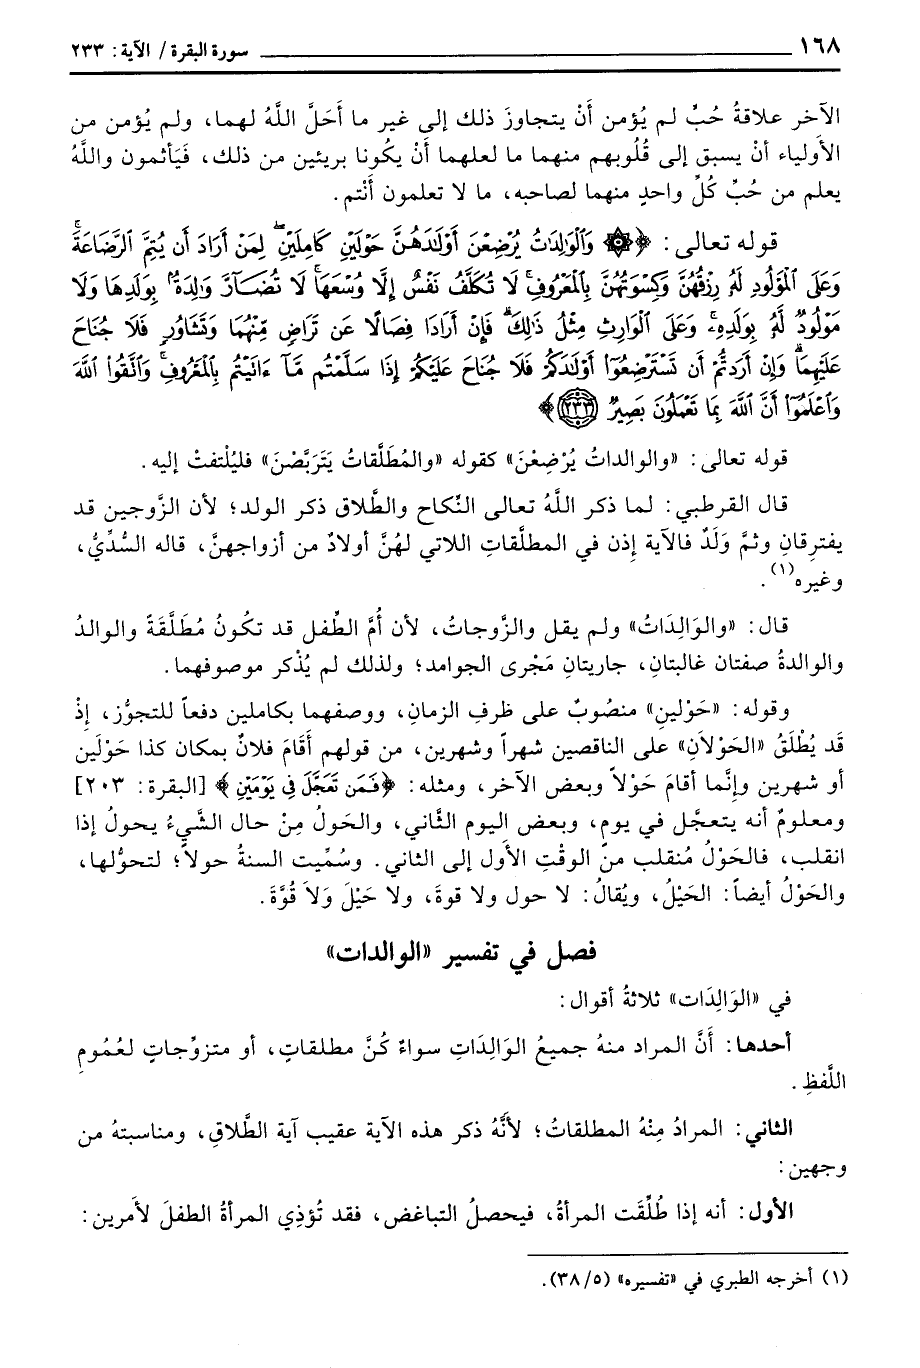 ١٦٨ سورة البقرة / الآية: ٢٣٣
الآخر علاقةُ حُبٍّ لم يُؤمن أَنْ يتجاوزَ ذلك إلى غير ما أَحَلَّ اللَّهُ لهما، ولم يُؤمن من
الأولياء أنْ يسبق إلى قُلُوبهم منهما ما لعلهما أَنْ يكُونا بريئين من ذلك، فَيَأثمون واللَّهُ
يعلم من حُبِّ كُلِّ واحدٍ منهما لصاحبه، ما لا تعلمون أَنْتم.
قوله تعالى: ﴿۞ وَٱلْوَٰلِدَٰتُ يُرْضِعْنَ أَوْلَٰدَهُنَّ حَوْلَيْنِ كَامِلَيْنِۖ لِمَنْ أَرَادَ أَن يُتِمَّ ٱلرَّضَاعَةَۚ
وَعَلَى ٱلْمَوْلُودِ لَهُۥ رِزْقُهُنَّ وَكِسْوَتُهُنَّ بِٱلْمَعْرُوفِۚ لَا تُكَلَّفُ نَفْسٌ إِلَّا وُسْعَهَاۚ لَا تُضَآرَّ وَٰلِدَةٌۢ بِوَلَدِهَا وَلَا
مَوْلُودٌ لَّهُۥ بِوَلَدِهِۦۚ وَعَلَى ٱلْوَارِثِ مِثْلُ ذَٰلِكَۗ فَإِنْ أَرَادَا فِصَالًا عَن تَرَاضٍ مِّنْهُمَا وَتَشَاوُرٍ فَلَا جُنَاحَ
عَلَيْهِمَاۗ وَإِنْ أَرَدتُّمْ أَن تَسْتَرْضِعُوٓا۟ أَوْلَٰدَكُمْ فَلَا جُنَاحَ عَلَيْكُمْ إِذَا سَلَّمْتُم مَّآ ءَاتَيْتُم بِٱلْمَعْرُوفِۗ وَٱتَّقُوا۟ ٱللَّهَ
وَٱعْلَمُوٓا۟ أَنَّ ٱللَّهَ بِمَا تَعْمَلُونَ بَصِيرٌ ٢٣٣﴾
قوله تعالى: «والوالداتُ يُرْضِعْنَ» كقوله «والمُطَلَّقاتُ يَتَرَبَّصْنَ» فليُلْتفتْ إليه.
قال القرطبي: لما ذكر اللَّهُ تعالى النّكاح والطَّلاق ذكر الولد؛ لأن الزَّوجين قد
يفترقانِ وثمَّ وَلَدٌ فالآية إذن في المطلَّقاتِ اللاتي لهُنَّ أولادٌ من أزواجهنَّ، قاله السُّدِّيُّ،
وغيره(١).
قال: «والوَالِدَاتُ» ولم يقل والزَّوجاتُ، لأن أُمَّ الطِّفل قد تكُونُ مُطَلَّقَةً والوالدُ
والوالدةُ صفتان غالبتانِ، جاريتانِ مَجْرى الجوامد؛ ولذلك لم يُذْكر موصوفهما.
وقوله: «حَوْلينِ» منصُوبٌ على ظرفِ الزمانِ، ووصفهما بكاملين دفعاً للتجوُّز، إذْ
قَد يُطْلَقُ «الحَوْلاَنِ» على الناقصين شهراً وشهرين، من قولهم أَقَامَ فلانٌ بمكان كذا حَوْلَين
أو شهرين وإنَّما أقامَ حَوْلاً وبعض الآخر، ومثله: ﴿فَمَن تَعَجَّلَ فِي يَوْمَيْنِ﴾ [البقرة: ٢٠٣]
ومعلومٌ أنه يتعجَّل في يومٍ، وبعض اليوم الثَّاني، والحَولُ مِنْ حال الشَّيءُ يحولُ إذا
انقلب، فالحَوْلُ مُنقلب من الوقْتِ الأَول إلى الثاني. وسُمِّيت السنةُ حولاً؛ لتحوُّلها،
والحَوْلُ أيضاً: الحَيْلُ، ويُقالُ: لا حول ولا قوةَ، ولا حَيْلَ وَلاَ قُوَّةَ.
فصل في تفسير «الوالدات»
في «الوَالِدَات» ثلاثةُ أقوال:
أحدها: أَنَّ المراد منهُ جميعُ الوَالِدَاتِ سواءٌ كُنَّ مطلقاتٍ، أو متزوِّجاتٍ لعُمُومِ
اللَّفظِ.
الثاني: المرادُ مِنْهُ المطلقاتُ؛ لأنَّهُ ذكر هذه الآية عقيب آية الطَّلاقِ، ومناسبتهُ من
وجهين:
الأول: أنه إذا طُلِّقَت المرأةُ، فيحصلُ التباغض، فقد تُؤذِي المرأةُ الطفلَ لأمرين:
(١) أخرجه الطبري في «تفسيره» (٣٨/٥).